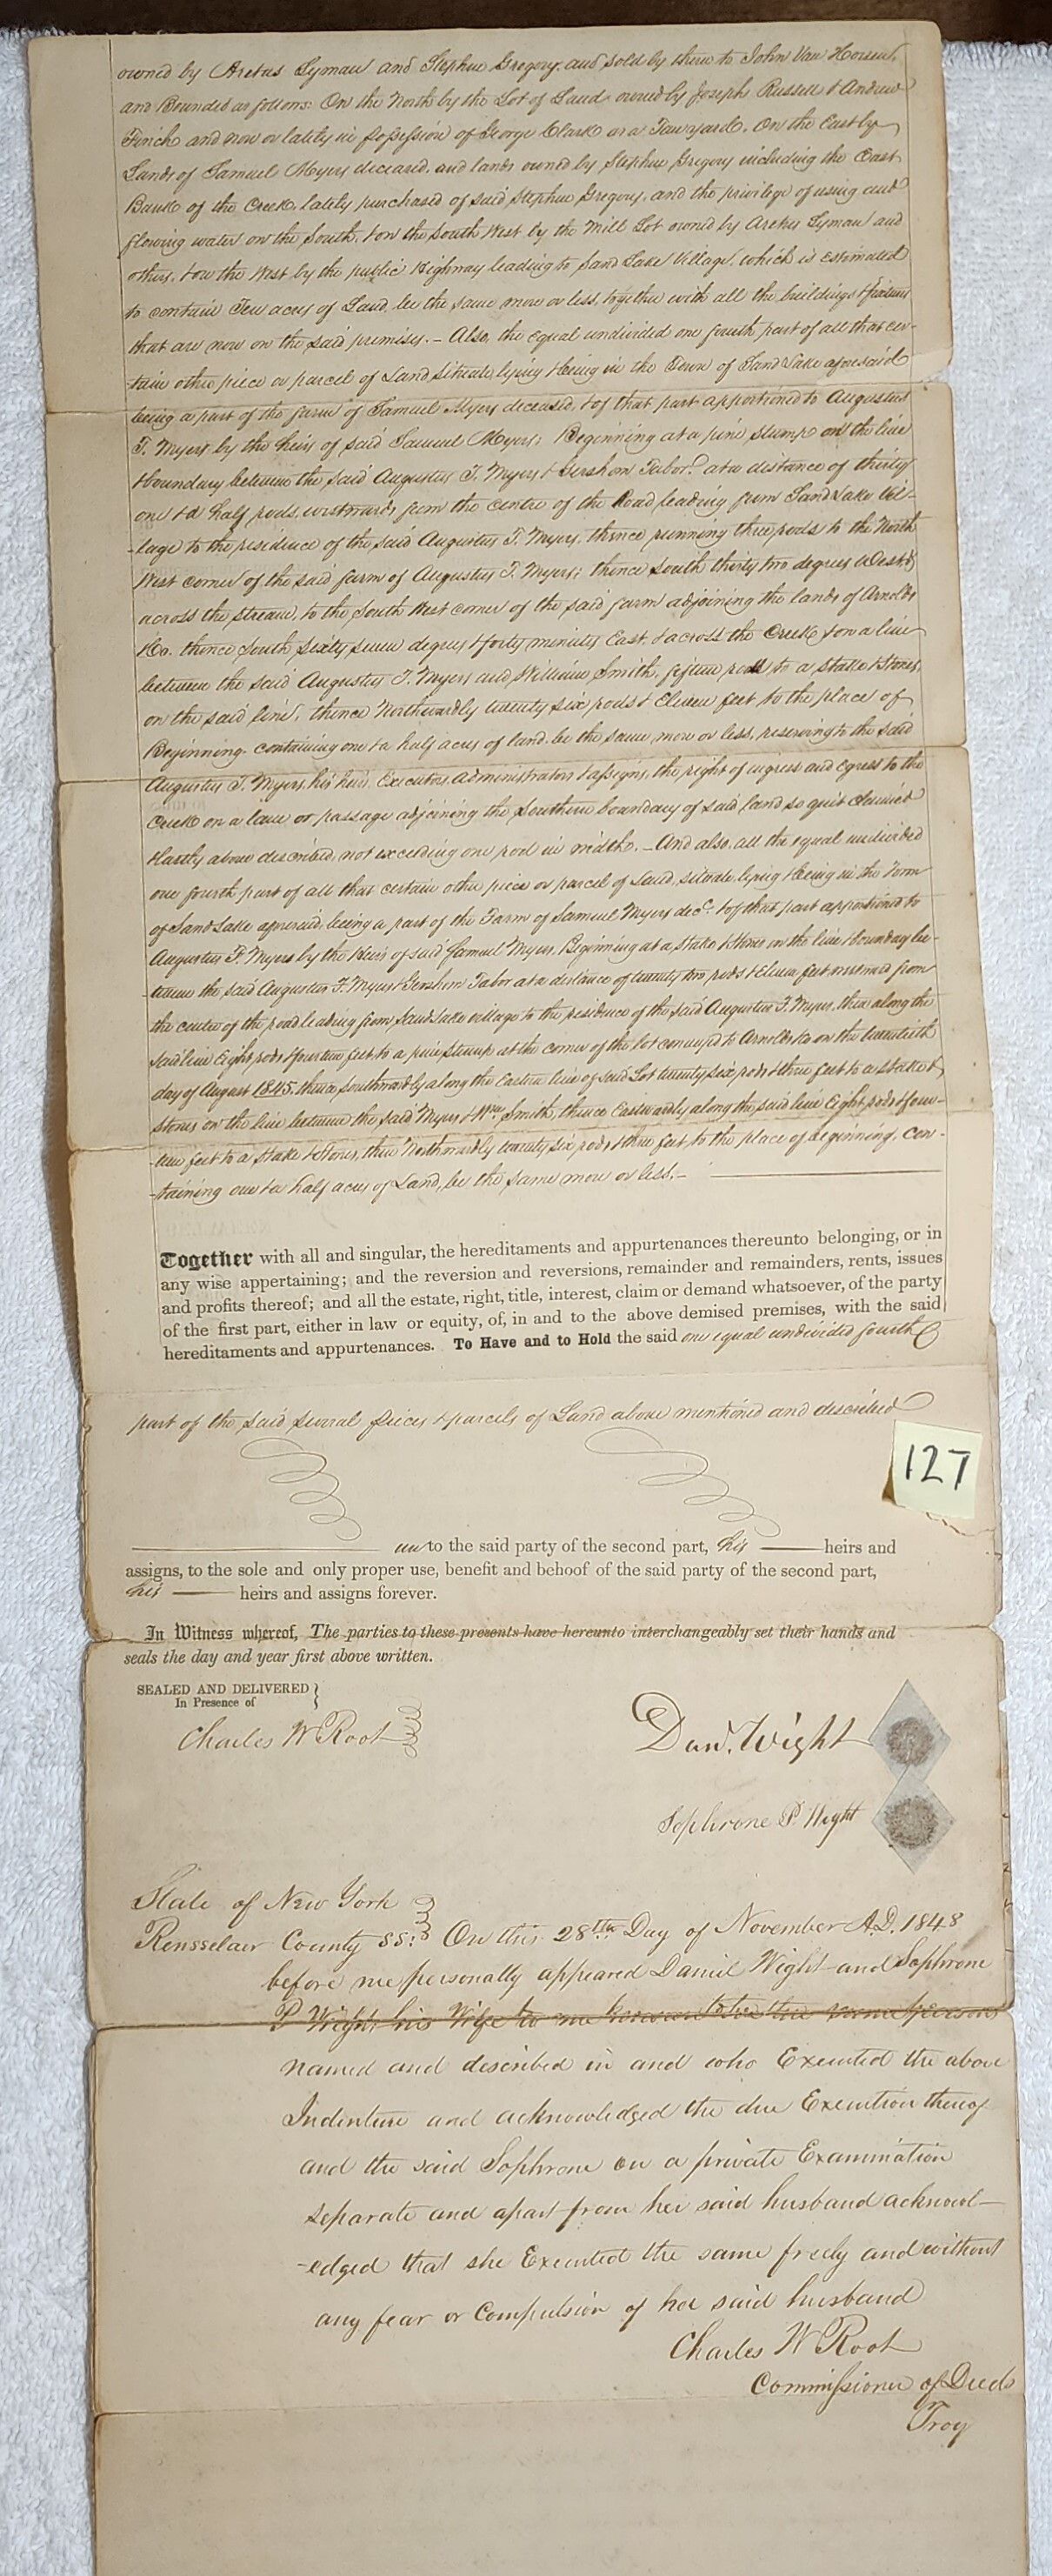 owned by Aretus Lyman and Stephen Gregory, and sold by them to John Van Hoesen,
and Bounded as follows: On the North by the Lot of Land owned by Joseph Russell & Andrew
Finch and now or lately in possession of George Clark as a Tanyard. On the East by
Lands of Samuel Myers deceased, and lands owned by Stephen Gregory including the East
Bank of the Creek, lately purchased of said Stephen Gregory, and the privilege of using and
flowing water on the South, & on the South West by the Mill Lot owned by Aretus Lyman and
others, & on the West by the public Highway leading to Sand Lake Village, which is estimated
to contain Ten acres of Land, be the same more or less, together with all the buildings & fixtures
that are now on the said premises. – Also, the equal undivided one fourth part of all that cer-
-tain other piece or parcel of Land situate lying & being in the Town of Sand Lake aforesaid
being a part of the farm of Samuel Myers deceased, & of that part apportioned to Augustus
F. Myers by the heirs of said Samuel Myers; Beginning at a pine stump on the line
& boundary between the said Augustus F. Myers & Gershom Tabor at a distance of thirty
one & a half rods, westwards from the centre of the Road leading from Sand Lake Vil-
-lage to the residence of the said Augustus F. Myers, thence running three rods to the North
West corner of the said farm of Augustus F. Myers; thence South thirty two degrees West &
across the stream, to the South West corner of the said farm adjoining the lands of Arnolds
& Co. thence South sixty seven degrees & forty minutes East, & across the Creek & on a line
between the said Augustus F. Myers and William Smith, fifteen rods to a stake & stones,
on the said line, thence Northwardly twenty six rods & Eleven feet to the place of
Beginning, containing one & a half acres of land, be the same more or less, reserving to the said
Augustus F. Myers, his heirs, Executors, Administrators & assigns, the right of ingress and egress to the
Creek on a lane or passage adjoining the Southern boundary of said land so quit claimed
& lastly above described, not exceeding one rod in width. – And also, all the equal undivided
one fourth part of all that certain other piece or parcel of Land, situate, lying & being in the Town
of Sand Lake aforesaid, being a part of the Farm of Samuel Myers decd. & of that part apportioned to
Augustus F. Myers by the Heirs of said Samuel Myers, Beginning at a stake & stones in the line & boundary be-
-tween the said Augustus F. Myers & Gershom Tabor at a distance of twenty two rods & Eleven feet westward from
the centre of the road leading from Sand Lake village to the residence of the said Augustus F. Myers, thence along the
said line Eight rods & fourteen feet to a pine stump at the corner of the lot conveyed to Arnolds & Co on the twentieth
day of August 1845, thence southwardly along the Eastern line of said Lot twenty six rods & three feet to a stake &
stones on the line between the said Myers & Wm Smith, thence Eastwardly along the said line Eight rods & four-
-teen feet to a stake & stones, thence Northwardly twenty six rods & three feet to the place of beginning, con-
-taining one & a half acres of Land, be the same more or less. –
Together with all and singular, the hereditaments and appurtenances thereunto belonging, or in
any wise appertaining; and the reversion and reversions, remainder and remainders, rents, issues
and profits thereof; and all the estate, right, title, interest, claim or demand whatsoever, of the party
of the first part, either in law or equity, of, in and to the above demised premises, with the said
hereditaments and appurtenances. To Have and to Hold the said one equal undivided fourth
part of the said several pieces & parcels of Land above mentioned and described
127
unto the said party of the second part, his heirs and
assigns, to the sole and only proper use, benefit and behoof of the said party of the second part,
his heirs and assigns forever.
In Witness whereof, The parties to these presents have hereunto interchangeably set their hands and
seals the day and year first above written.
SEALED AND DELIVERED
In Presence of
Charles W Root
Danl. Wight
Sophrone P. Wight
State of New York
Rensselaer County SS: On this 28th Day of November A.D. 1848
before me personally appeared Daniel Wight and Sophrone
P Wight his Wife to me known to be the same persons
named and described in and who Executed the above
Indenture and acknowledged the due Execution thereof
and the said Sophrone on a private Examination
separate and apart from her said husband acknowl-
-edged that she Executed the same freely and without
any fear or Compulsion of her said husband
Charles W Root
Commissioner of Deeds
Troy